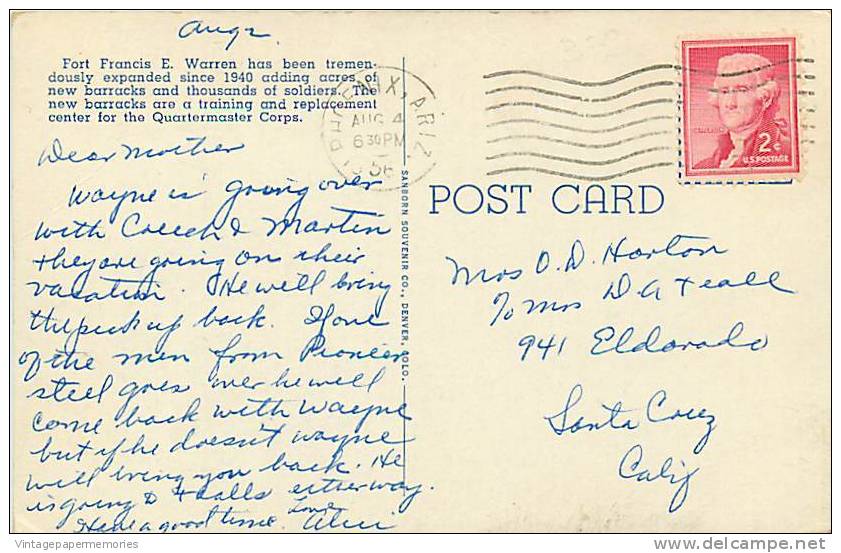 Aug 2
Fort Francis E. Warren has been tremen-
dously expanded since 1940 adding acres of
new barracks and thousands of soldiers. The
new barracks are a training and replacement
center for the Quartermaster Corps.
PHOENIX, ARIZ.
AUG 4
6 30 PM
1956
2¢
U.S. POSTAGE
Dear Mother
Wayne is going over
with Creech & Martin
they are going on their
vacation. He will bring
the pick up back. If one
of the men from Pioneer
steel goes over he will
come back with Wayne
but if he doesn't Wayne
will bring you back. He
is going to Tealls either way.
Have a good time. Love
SANBORN SOUVENIR CO., DENVER, COLO.
POST CARD
Mrs O. D. Horton
% Mrs D A Teall
941 Eldorado
Santa Cruz
Calif
Vintagepapermemories
delcampe.net